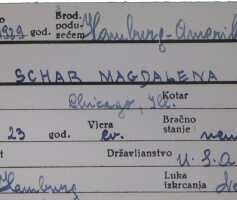 1929 god. Brod. podu- zećem Hamburg-Amerik
SCHAR MAGDALENA
Chicago, Ill. Kotar
23 god. Vjera ev. Bračno stanje
Državljanstvo U.S.A
Hamburg Luka iskrcanja